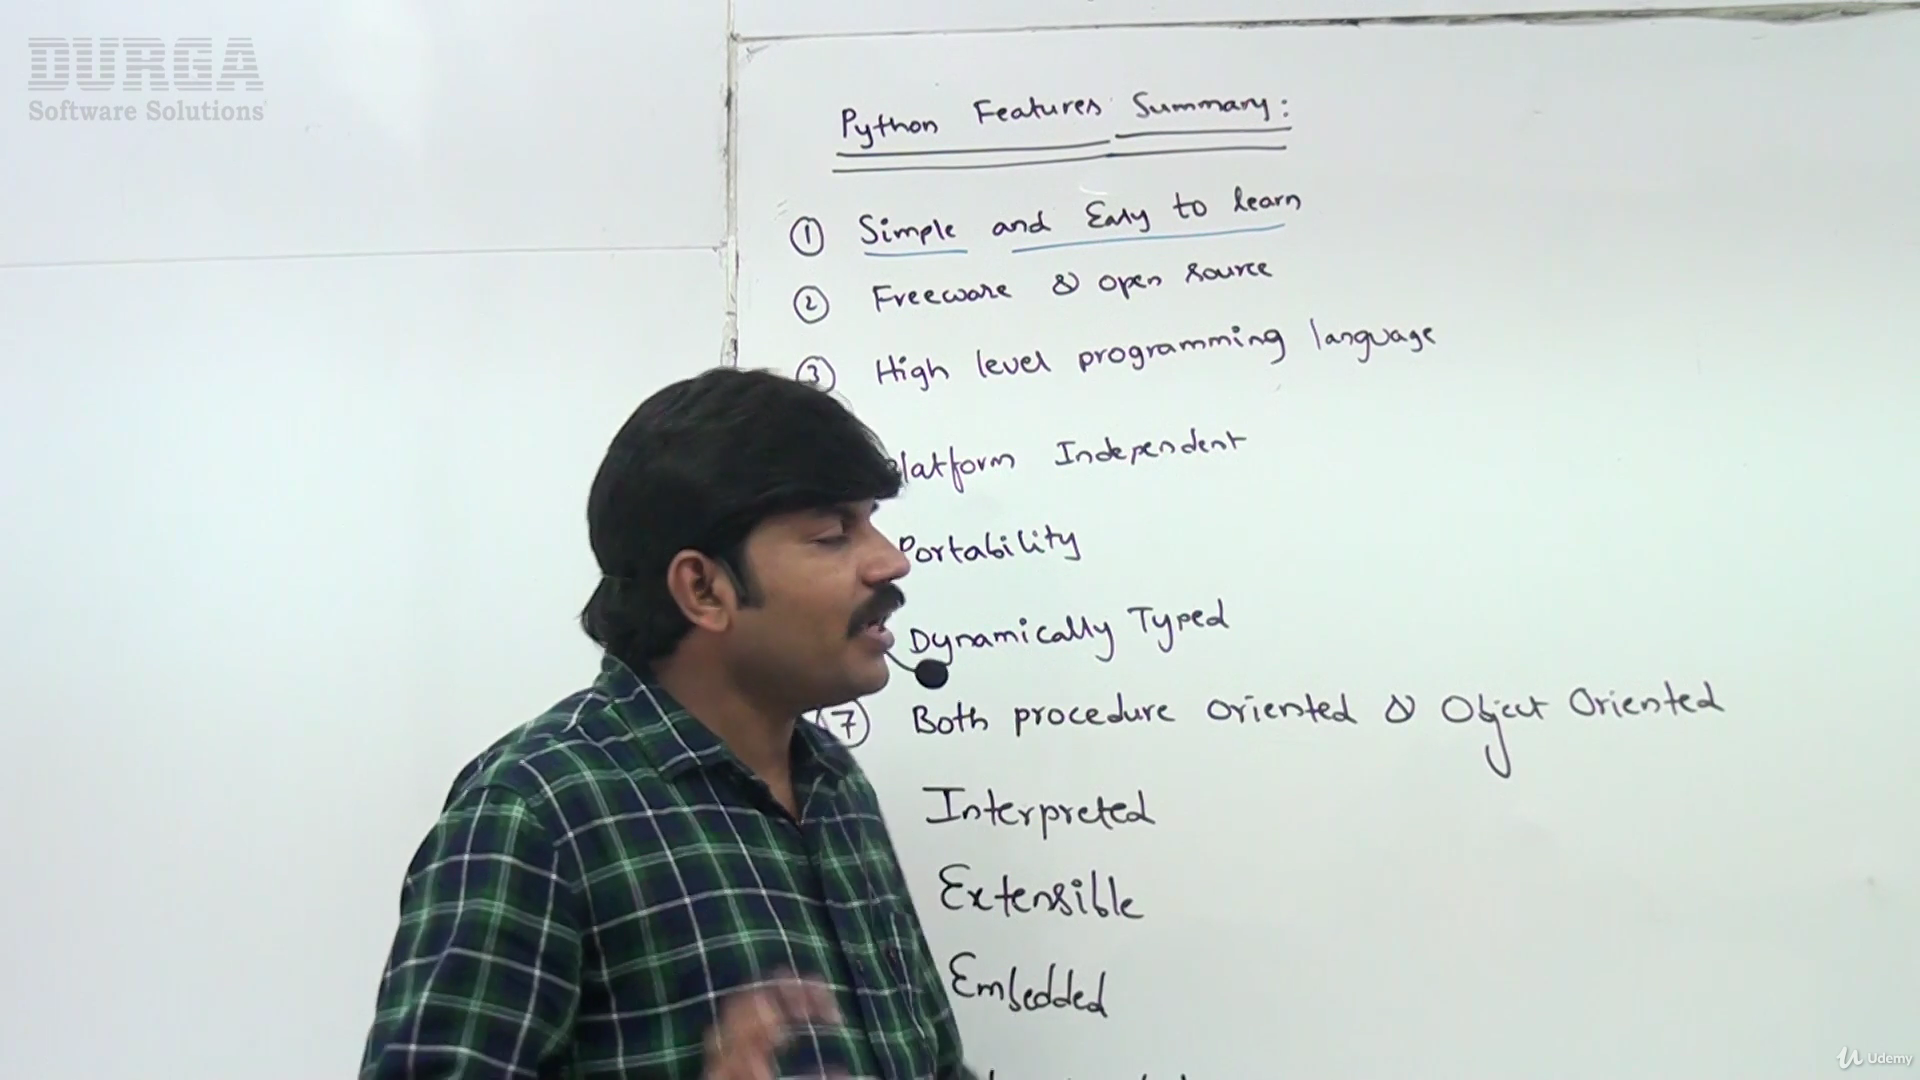 DURGA
Software Solutions
Python Features Summary:
① Simple and Easy to learn
② Freeware & open source
③ High level programming language
Platform Independent
Portability
Dynamically Typed
⑦ Both procedure oriented & Object Oriented
Interpreted
Extensible
Embedded
Udemy